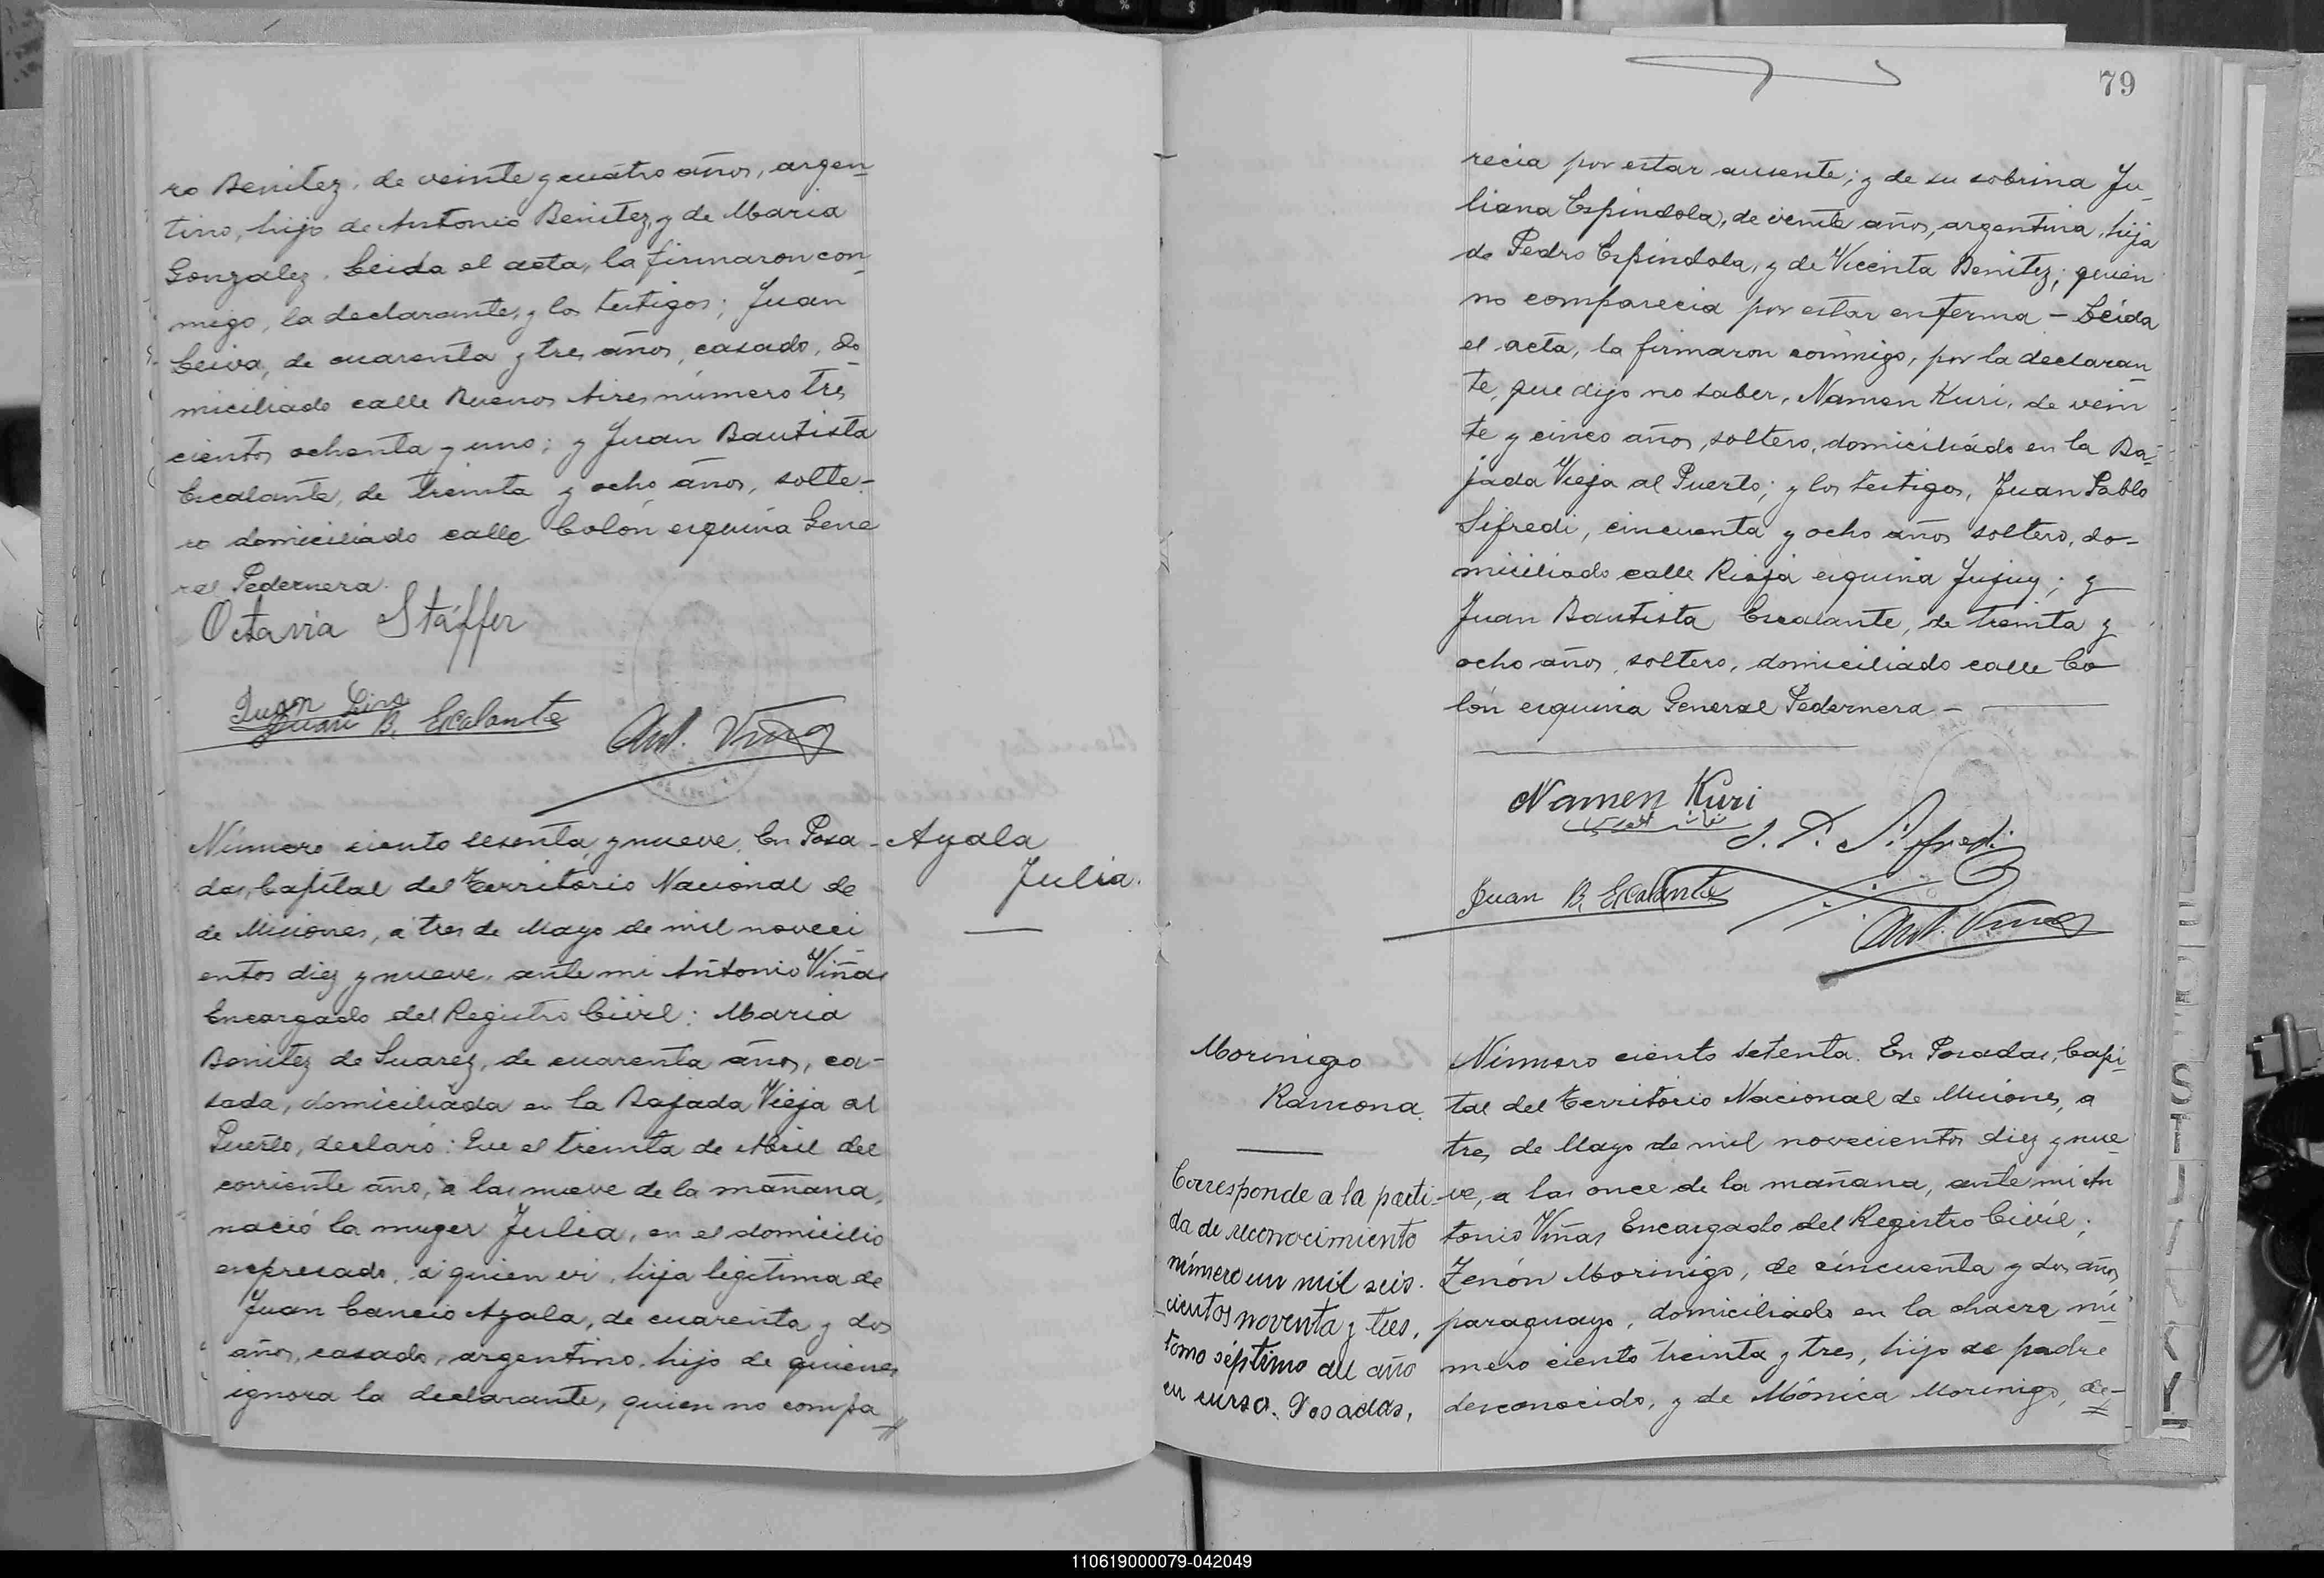 ro Benitez, de veinte y cuatro años, argen-
tino, hijo de Antonio Benitez, y de Maria
Gonzalez. Leida el acta, la firmaron con-
migo, la declarante, y los testigos; Juan
Leiva, de cuarenta y tres años, casado, do-
miciliado calle Buenos Aires número tres
cientos ochenta y uno; y Juan Bautista
Escalante, de treinta y ocho años, solte-
ro domiciliado calle Colón esquina Gene
ral Pedernera.
Octavia Stáffer
Juan Leiva
Juan B. Escalante
Ant. Viñas
Número ciento sesenta y nueve. En Posa-
das, Capital del Territorio Nacional de
de Misiones, a tres de Mayo de mil noveci
entos diez y nueve, ante mi Antonio Viñas
Encargado del Registro Civil: Maria
Benitez de Suarez, de cuarenta años, ca-
sada, domiciliada en la Bajada Vieja al
Puerto, declaró: Que el treinta de Abril del
corriente año, a las nueve de la mañana,
nació la muger Julia, en el domicilio
expresado, a quien vi, hija legitima de
Juan Cancio Ayala, de cuarenta y dos
años, casado, argentino, hijo de quienes
ignora la declarante, quien no compa
Ayala
Julia.
79
recia por estar ausente; y de su sobrina Ju-
liana Espindola, de veinte años, argentina, hija
de Pedro Espindola, y de Vicenta Benitez; quien
no comparecia por estar enferma - Leida
el acta, la firmaron conmigo, por la declaran-
te, que dijo no saber, Namen Kuri, de vein
te y cinco años, soltero, domiciliado en la Ba-
jada Vieja al Puerto; y los testigos, Juan Pablo
Sifredi, cincuenta y ocho años soltero, do-
miciliado calle Rioja esquina Jujuy; y
Juan Bautista Escalante, de treinta y
ocho años, soltero, domiciliado calle Co
lón esquina General Pedernera -
Namen Kuri
J. P. Sifredi
Juan B. Escalante
Ant. Viñas
Morinigo
Ramona.
Corresponde a la parti-
da de reconocimiento
número un mil seis-
cientos noventa y tres,
tomo séptimo del año
en curso. Posadas,
Número ciento setenta. En Posadas, Capi-
tal del Territorio Nacional de Misiones, a
tres de Mayo de mil novecientos diez y nue-
ve, a las once de la mañana, ante mi An
tonio Viñas Encargado del Registro Civil;
Zenón Morinigo, de cincuenta y dos años
paraguayo, domiciliado en la chacra nú-
mero ciento treinta y tres, hijo de padre
desconocido, y de Mónica Morinigo, de-
110619000079-042049